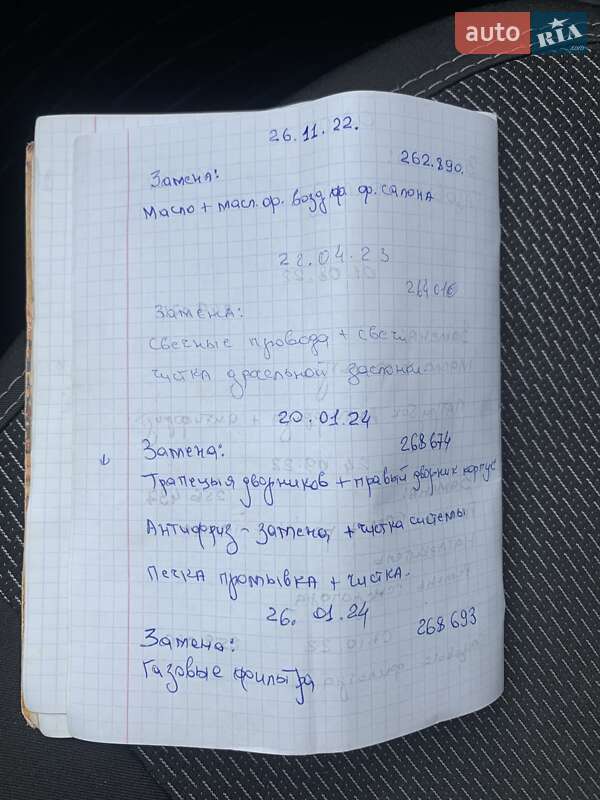 auto RIA .com
26.11.22.
262.890.
Замена:
Масло + масл. ф. возд. ф ф. салона
22.04.23
264016
Замена:
свечные провода + свечи
чистка дросельной заслонки
20.01.24
268674
Замена:
Трапецыя дворников + правый дворник корпус
Антифриз - замена, + чистка системы
Печка промывка + чистка.
26. 01.24
268693
Замена:
Газовые фильтра